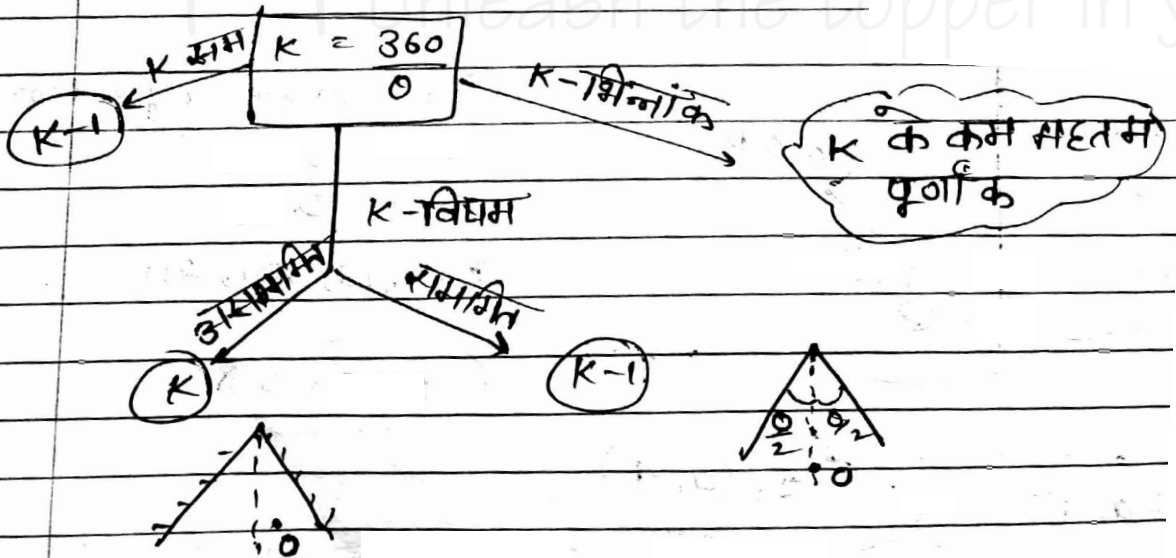 Unleash the topper in y
K सम
K = 360/θ
K-भिन्नांक
K-1
K के कम महत्तम
पूर्णांक
K-विषम
असममित
सममित
K
K-1
θ/2 θ/2
O
O